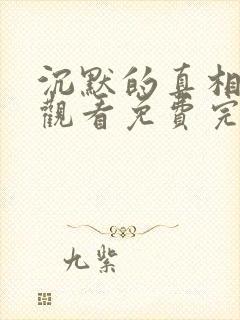 沉默的真相
觀看免費完
九紫